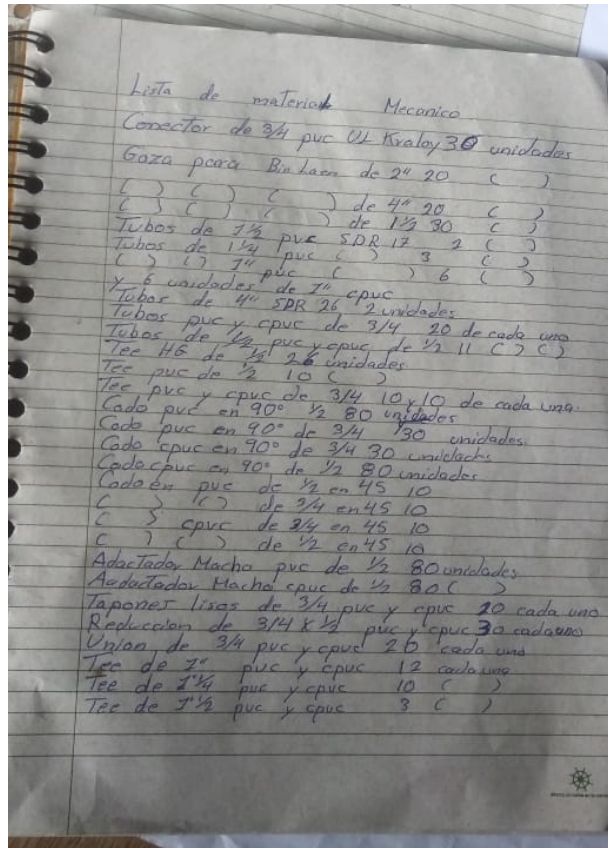 Lista de material Mecanico
Conector de 3/4 pvc UL Kraloy 30 unidades
Gaza para Bin Laen de 2" 20 ( )
( ) ( ) ( ) de 4" 20 ( )
( ) ( ) ( ) de 1 1/2 30 ( )
Tubos de 1 1/2 pvc SDR 17 2 ( )
Tubos de 1 1/4 pvc ( ) 3 ( )
( ) ( ) 1" pvc ( ) 6 ( )
y 6 unidades de 1" cpvc
Tubos de 4" SDR 26 2 unidades
Tubos pvc y cpvc de 3/4 20 de cada uno
Tubos de 1/2 pvc y cpvc de 1/2 11 ( ) ( )
Tee HG de 1/2 26 unidades
Tee pvc de 1/2 10 ( )
Tee pvc y cpvc de 3/4 10 y 10 de cada una.
Codo pvc en 90° 1/2 80 unidades
Codo pvc en 90° de 3/4 30 unidades.
Codo cpvc en 90° de 3/4 30 unidades
Codo cpvc en 90° de 1/2 80 unidades
Codo en pvc de 1/2 en 45 10
( ) ( ) de 3/4 en 45 10
( ) cpvc de 3/4 en 45 10
( ) ( ) de 1/2 en 45 10
Adactador Macho pvc de 1/2 80 unidades
Aadactador Macho cpvc de 1/2 80 ( )
Tapones lisos de 3/4 pvc y cpvc 20 cada uno
Reduccion de 3/4 x 1/2 pvc y cpvc 30 cada uno
Union de 3/4 pvc y cpvc 26 cada una
Tee de 1" pvc y cpvc 12 cada una
Tee de 1" 1/4 pvc y cpvc 10 ( )
Tee de 1" 1/2 pvc y cpvc 3 ( )